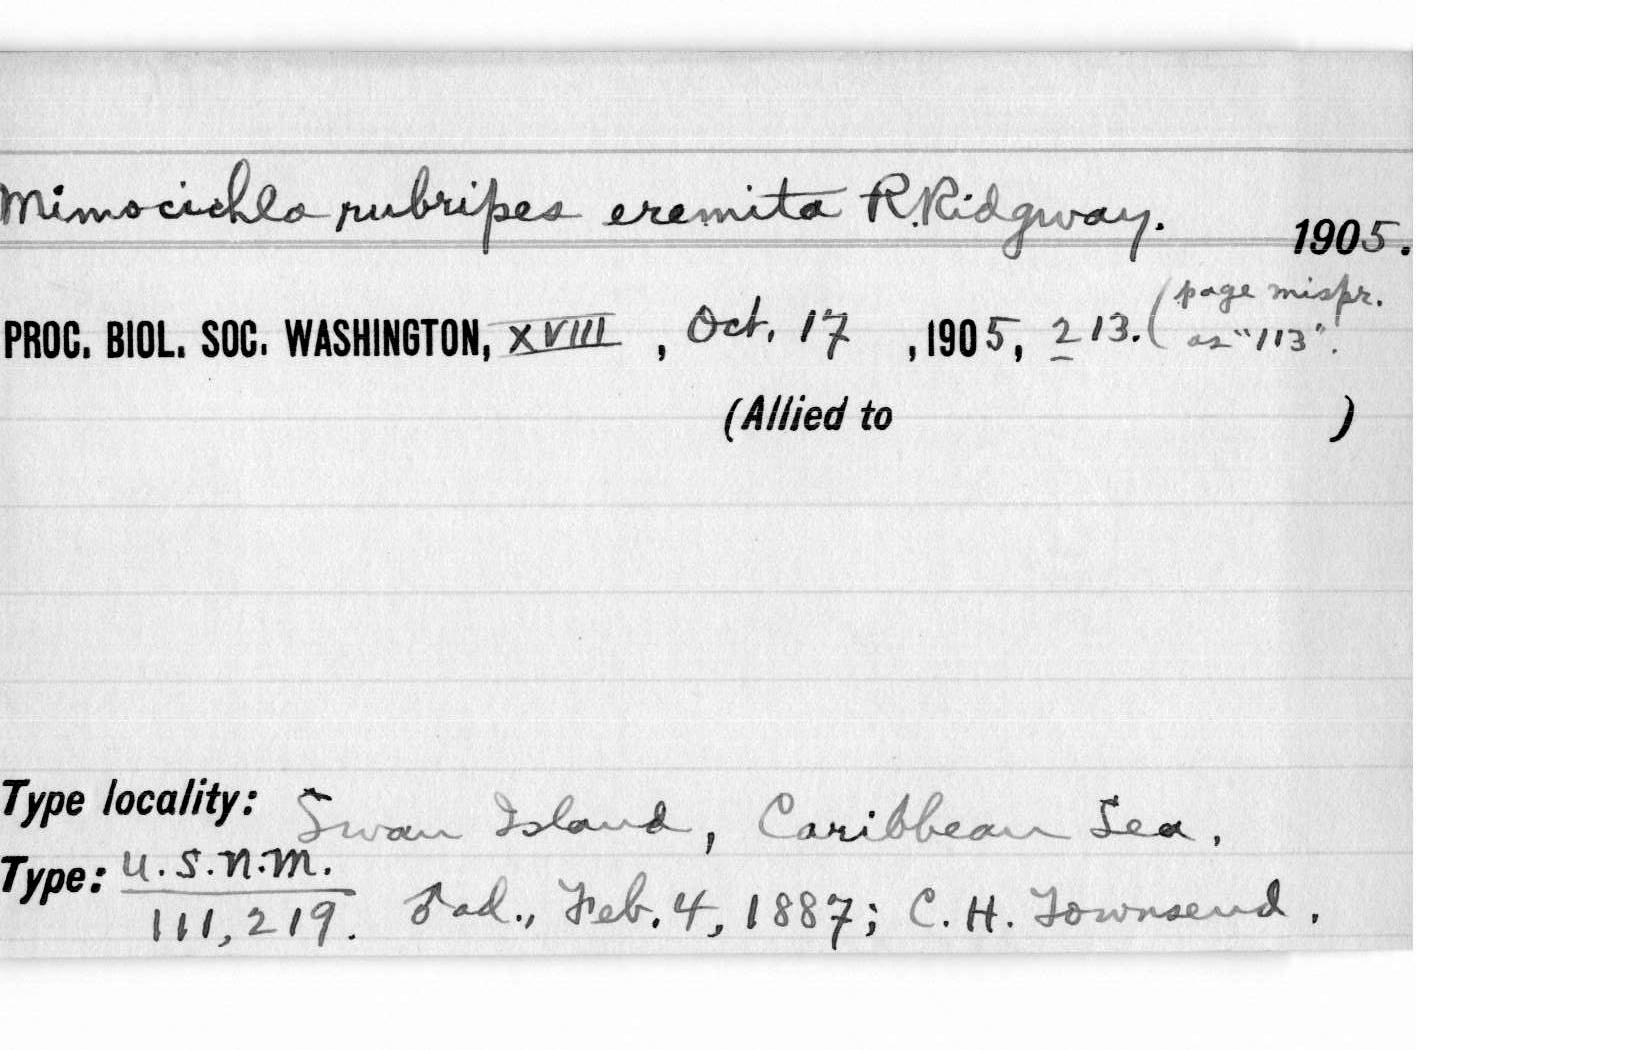 Mimocichla rubripes eremita R.Ridgway. 1905.
PROC. BIOL. SOC. WASHINGTON, XVIII, Oct. 17, 1905, 213. (page mispr. as "113".
(Allied to )
Type locality: Swan Island, Caribbean Sea.
Type: U.S.N.M. 111,219. ♂ ad., Feb. 4, 1887; C. H. Townsend.